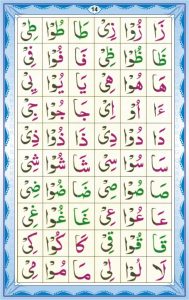 14
زَا زُوْا زِىْ طَا طُوْا طِىْ
ظَا ظُوْا ظِىْ فَا فُوْا فِىْ
هَا هُوْا هِىْ يَا يُوْا يِىْ
ءَا اُوْ اِىْ جَا جُوْا جِىْ
دَا دُوْا دِىْ ذَا ذُوْا ذِىْ
سَا سُوْا سِىْ شَا شُوْا شِىْ
صَا صُوْا صِىْ ضَا ضُوْا ضِىْ
عَا عُوْا عِىْ غَا غُوْا غِىْ
قَا قُوْا قِىْ كَا كُوْا كِىْ
لَا لُوْا لِىْ مَا مُوْا مِىْ